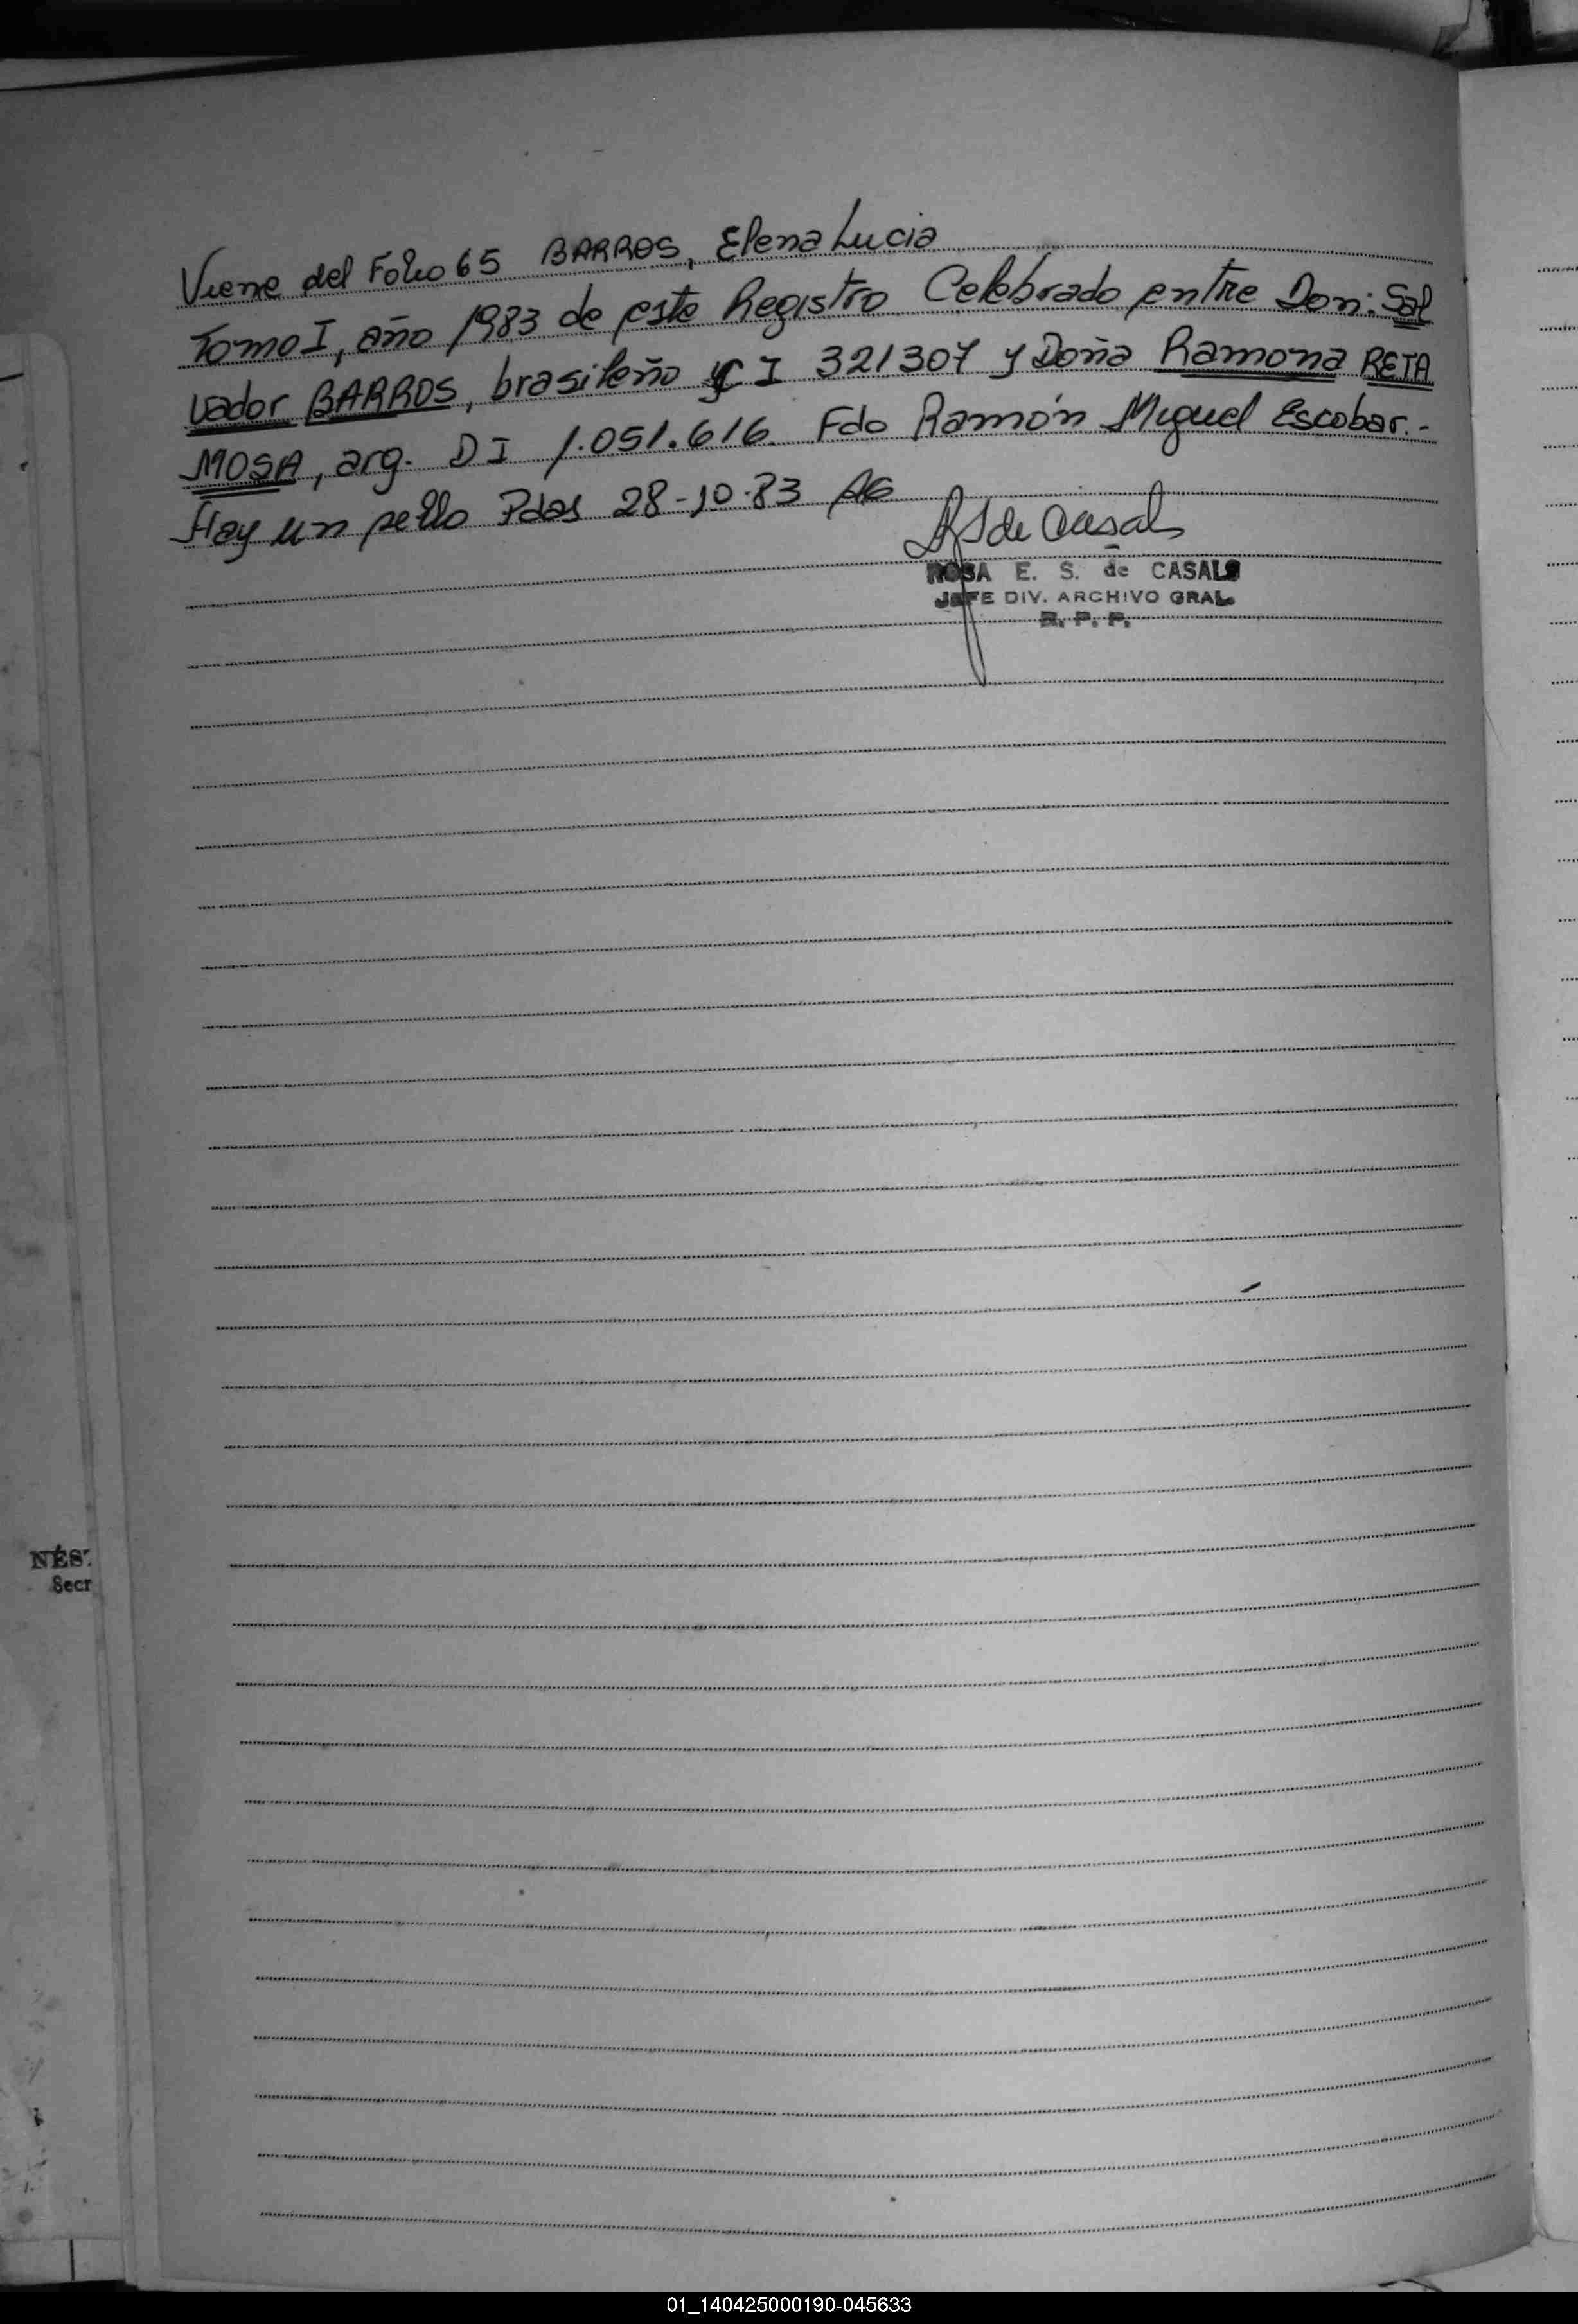 Viene del Folio 65 BARROS, Elena Lucia
Tomo I, año 1983 de este Registro Celebrado entre Don: Sal
vador BARROS, brasileño C I 321307 y Doña Ramona RETA
MOSA, arg. D I 1.051.616. Fdo Ramón Miguel Escobar.-
Hay un sello Pdas 28-10-83 AG
RS de Casals
ROSA E. S. de CASALS
JEFE DIV. ARCHIVO GRAL.
R. P. P.
NÉS
Secr
01_140425000190-045633